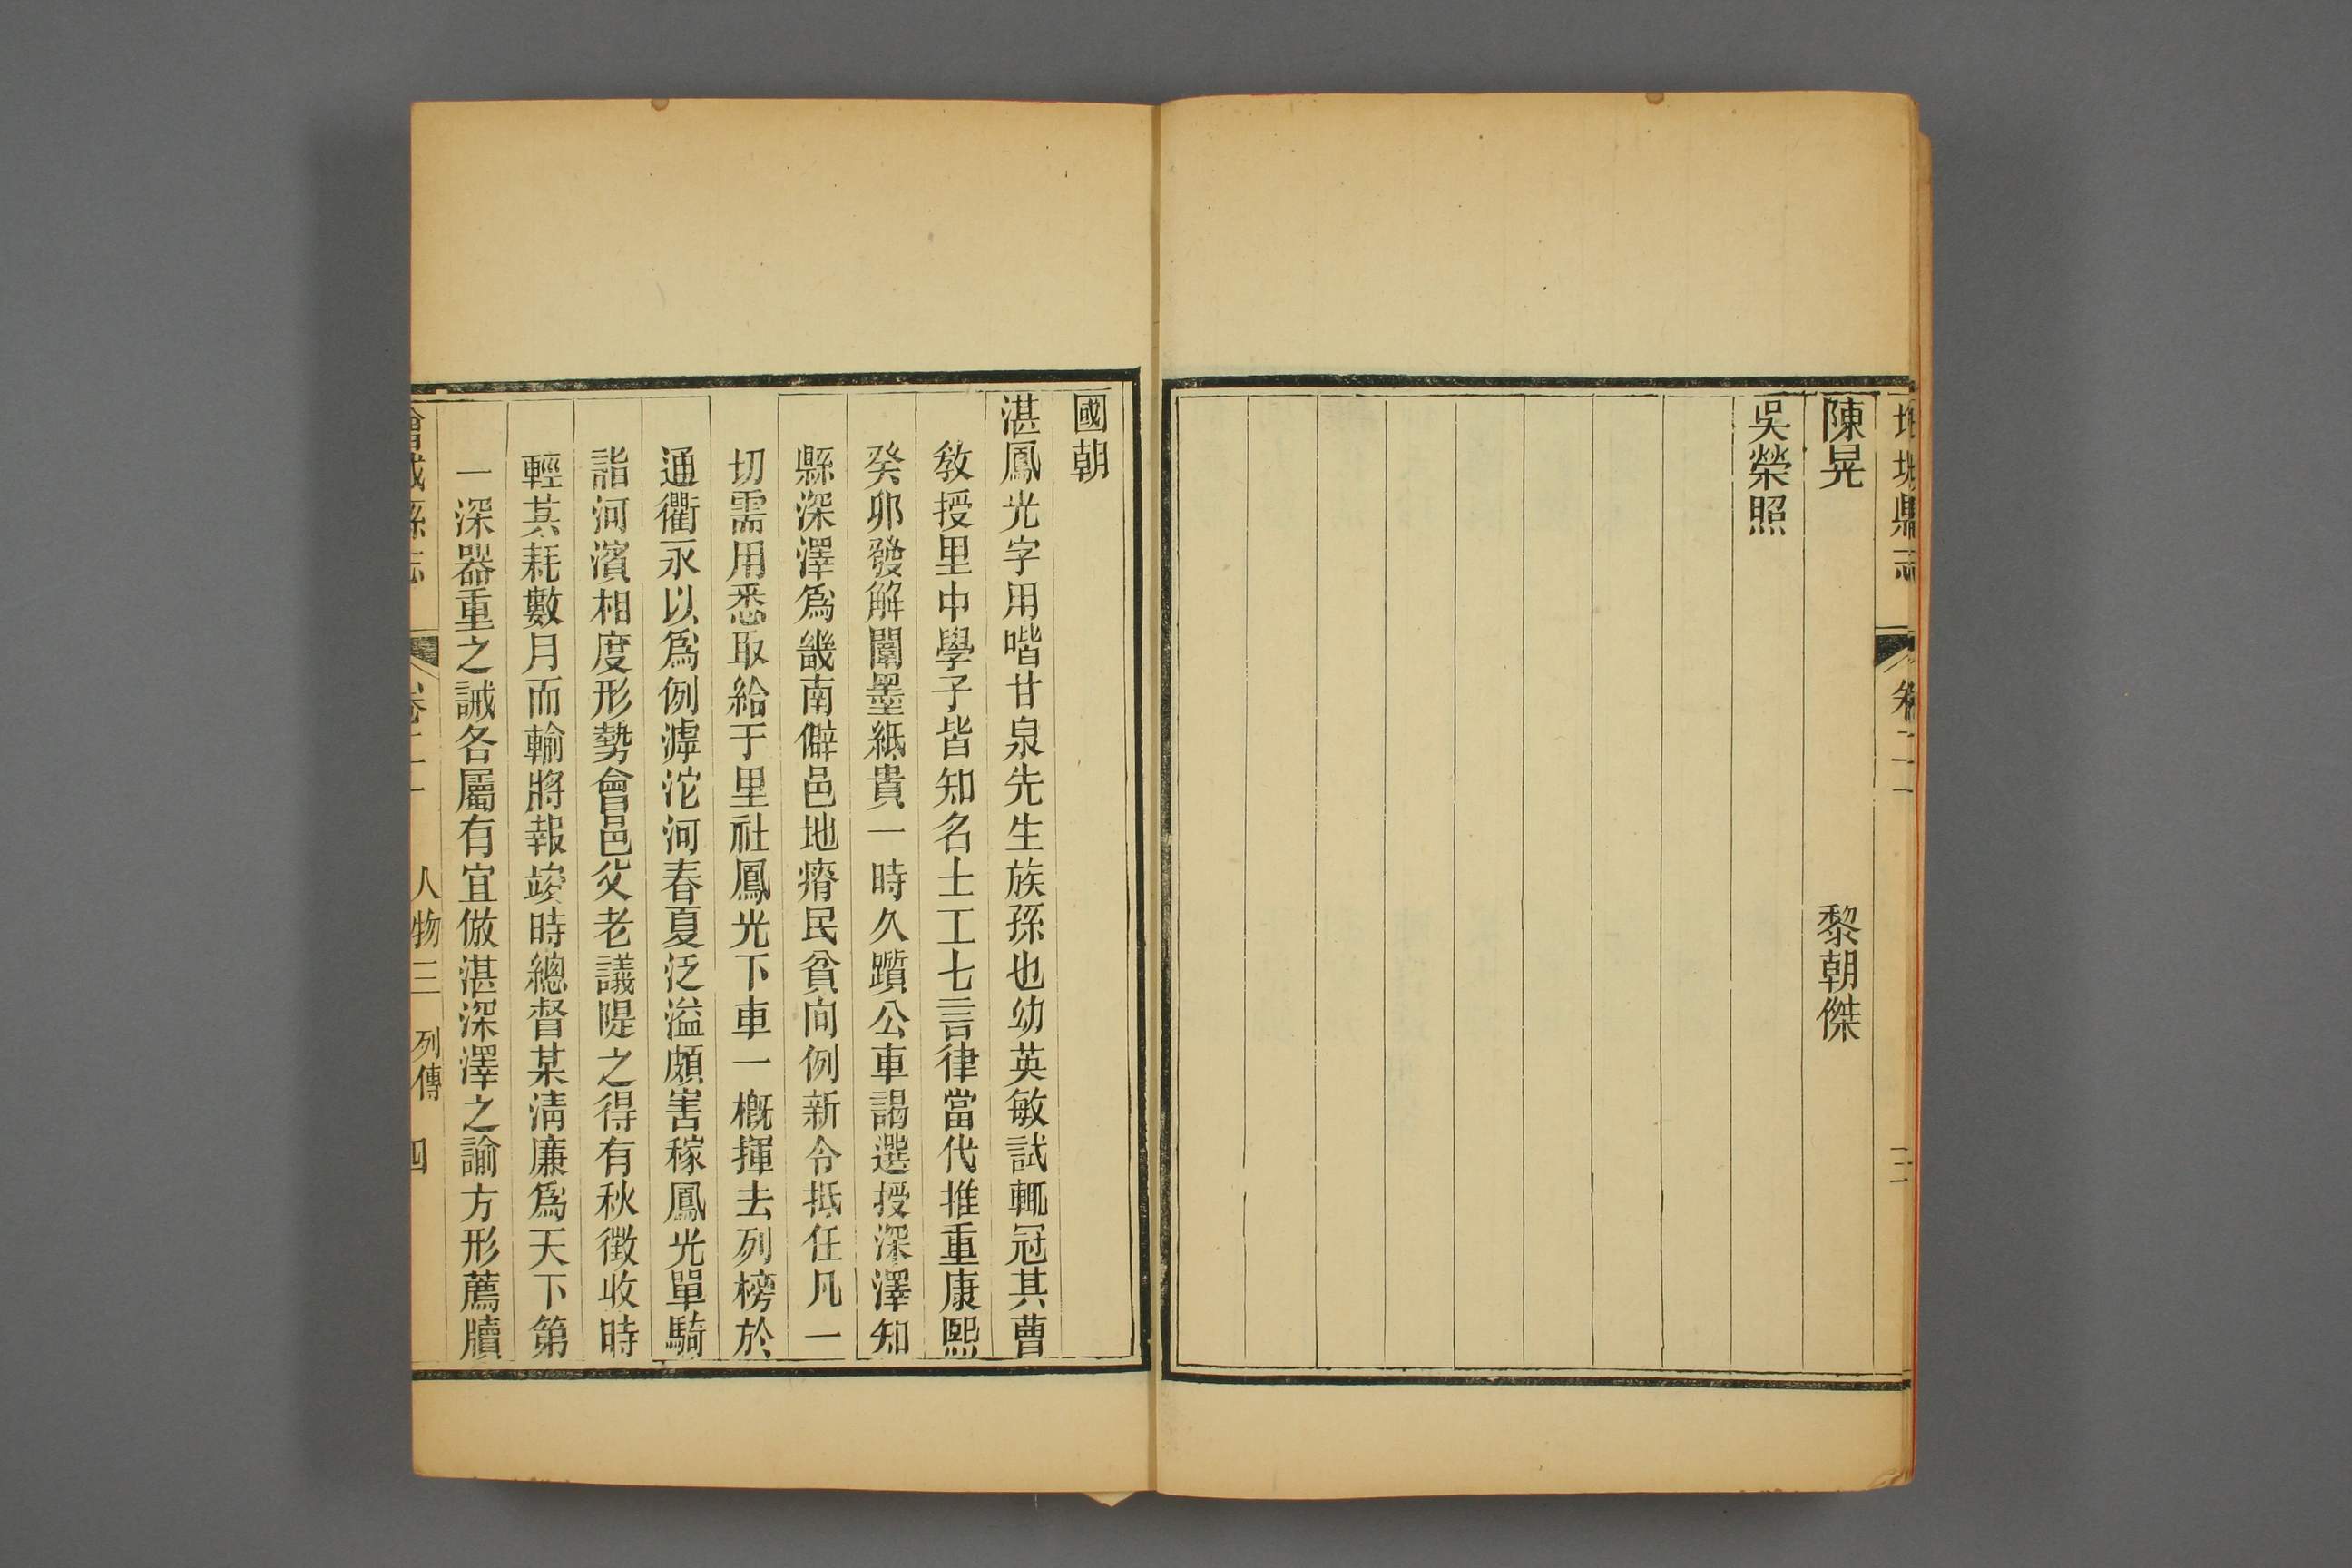 增城縣志
卷二十
三
陳晃 黎朝傑
吳榮照
國朝
湛鳳光字用喈甘泉先生族孫也幼英敏試輒冠其曹
敎授里中學子皆知名士工七言律當代推重康熙
癸卯發解闈墨紙貴一時久躓公車謁選授深澤知
縣深澤爲畿南僻邑地瘠民貧向例新令抵任凡一
切需用悉取給于里社鳳光下車一槪揮去列榜於
通衢永以爲例滹沱河春夏泛溢頗害稼鳳光單騎
詣河濱相度形勢會邑父老議隄之得有秋徵收時
輕其耗數月而輸將報竣時總督某淸廉爲天下第
一深器重之誡各屬有宜倣湛深澤之諭方形薦牘
增城縣志
卷二十
人物三 列傳
四